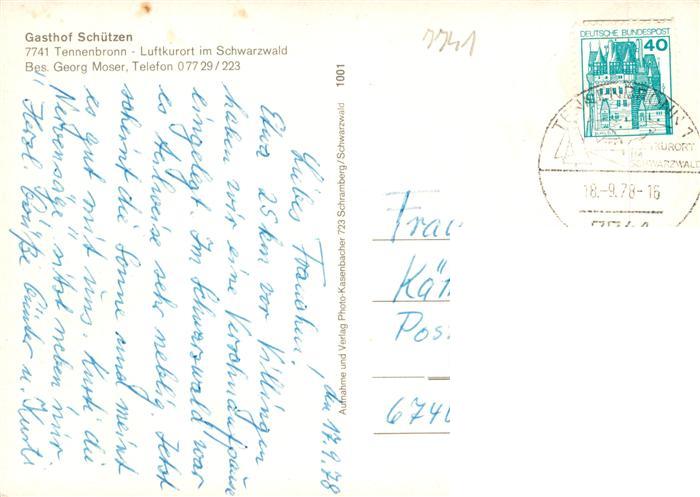 Gasthof Schützen
7741 Tennenbronn - Luftkurort im Schwarzwald
Bes. Georg Moser, Telefon 0 77 29 / 223
den 17.9.78
Liebes Frauchen!
Etwa 25 km vor Villingen
haben wir eine Verschnaufpause
eingelegt. Im Schwarzwald war
es teilweise sehr neblig. Jetzt
scheint die Sonne und meint
es gut mit uns. Kurti die
"Nervensäge" sitzt neben mir.
Herzl. Grüße Günter u. Kurti
Aufnahme und Verlag Photo-Kasenbacher 723 Schramberg/Schwarzwald 1001
7741
DEUTSCHE BUNDESPOST
40
TENNENBRONN 7
LUFTKURORT
SCHWARZWALD
18.-9.78-16
7741
Frau
Kä
Pos
6740